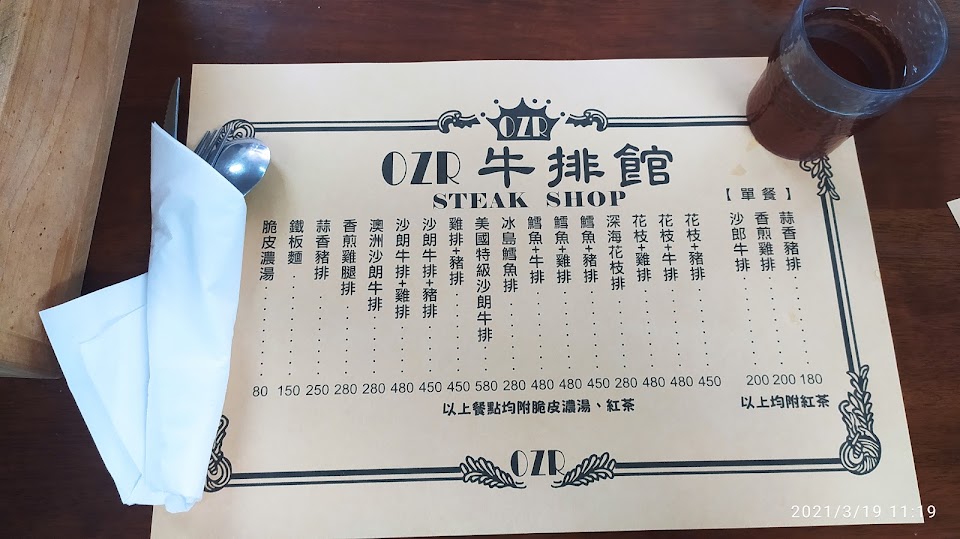 OZR
OZR 牛排館
STEAK SHOP
【單餐】
蒜香豬排 180
香煎雞排 200
沙郎牛排 200
以上均附紅茶
花枝+豬排 450
花枝+牛排 480
花枝+雞排 480
深海花枝排 280
鱈魚+豬排 450
鱈魚+雞排 480
鱈魚+牛排 480
冰島鱈魚排 280
美國特級沙朗牛排 580
雞排+豬排 450
沙朗牛排+豬排 450
沙朗牛排+雞排 480
澳洲沙朗牛排 280
香煎雞腿排 280
蒜香豬排 250
鐵板麵 150
脆皮濃湯 80
以上餐點均附脆皮濃湯、紅茶
OZR
2021/3/19 11:19